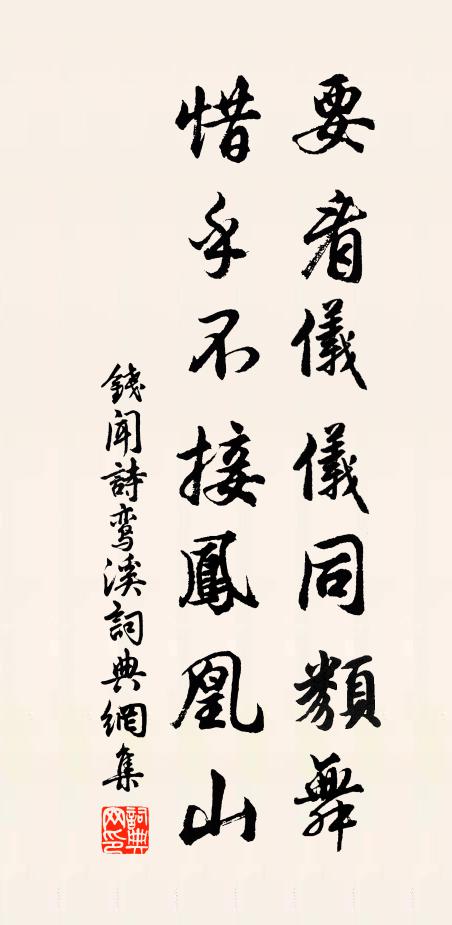 要看儀儀同類舞
惜乎不接鳳凰山
錢聞詩鸾溪詞典網集
詞典网印